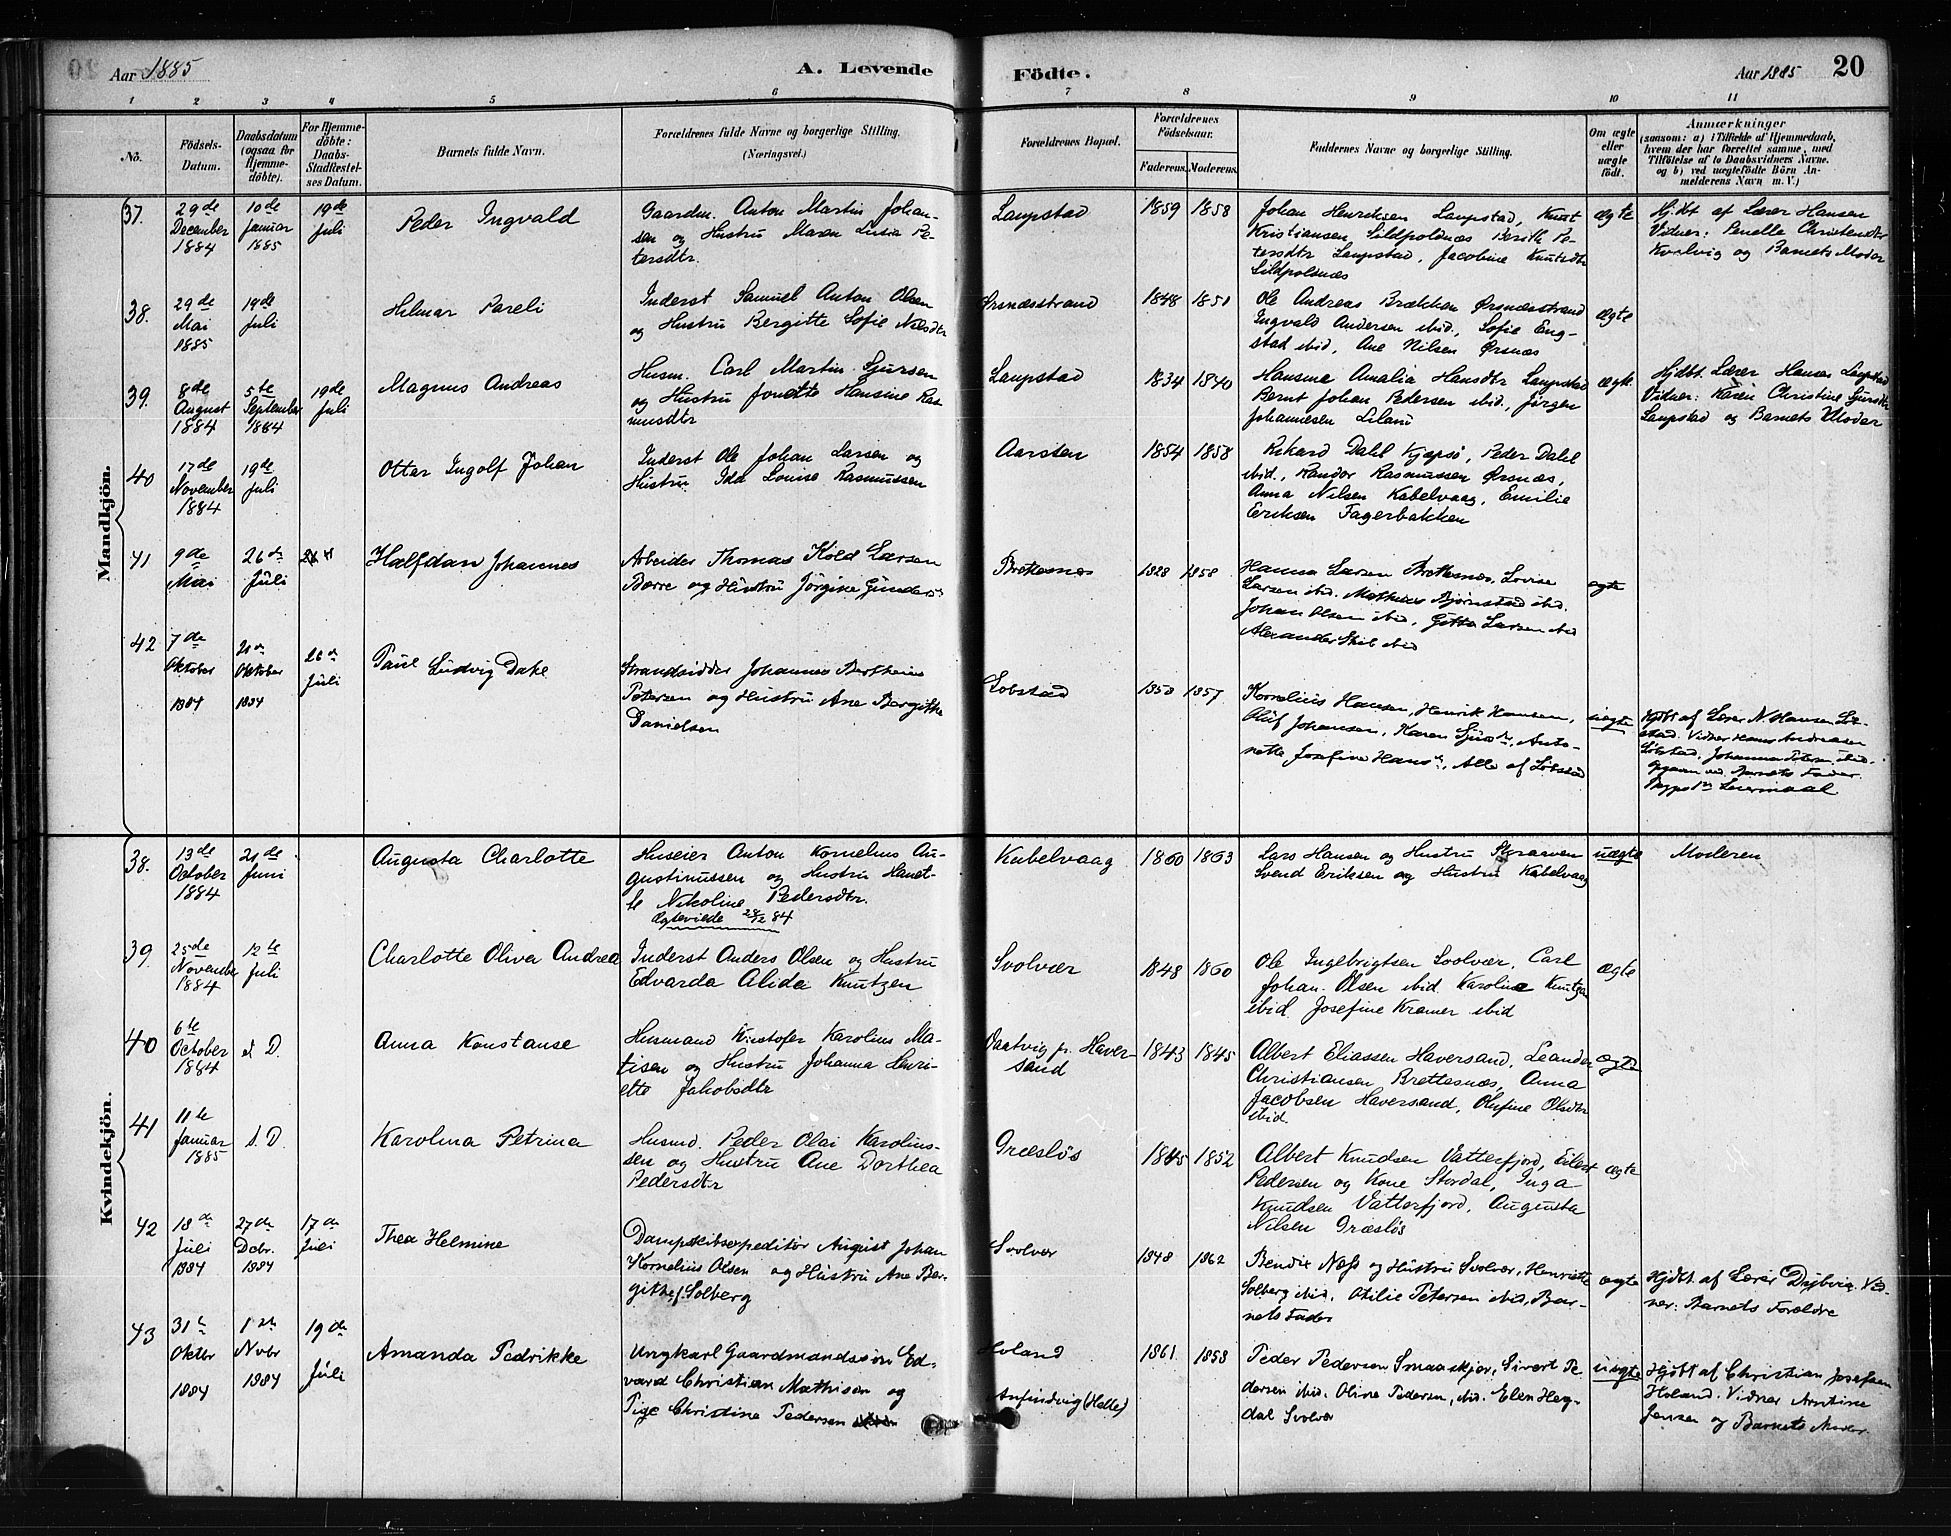 Aar 1885
A. Levende
Födte.
Aar 1885
20
1 2 3 4 5 6 7 8 9 10 11
No.
Födsels-Datum.
Daabsdatum (ogsaa for Hjemme-döbte).
For Hjemme-döbte: Daabs-Stadfæstel-ses Datum.
Barnets fulde Navn.
Forældrenes fulde Navne og borgerlige Stilling. (Næringsvei.)
Forældrenes Bopæl.
Forældrenes Födselsaar.
Faderens. Moderens.
Faddernes Navne og borgerlige Stilling.
Om ægte eller uægte födt.
Anmærkninger
(saasom: a) i Tilfælde af Hjemmedaab, hvem der har forrettet samme, med Tilföielse af to Daabsvidners Navne. og b) ved uægtefödte Börn An-melderens Navn m. V.)
Mandkjön.
37. 29de December 1884
10de Januar 1885
19de Juli
Peder Ingvald
Gaardm. Anton Martin Johan-
sen og Hustru Maren Lusia Pe-
tersdtr.
Laupstad
1859 1858
Johan Henriksen Laupstad, Knut
Kristiansen Sildpolnæs Berith Pe-
tersdtr Laupstad, Jacobine Knutsdtr
Sildpolnæs
ægte
Hjdbt af Lærer Hansen
Vidner: Penelle Christensdtr
Kvalvig og Barnets Moder
38. 29de Mai 1885
19de Juli
Helmar Pareli
Inderst Samuel Anton Olsen
og Hustru Bergitte Sofie Nilsdtr
Ørsnæsstrand
1848 1850
Ole Andreas Brækken Ørsnæsstrand
Ingvald Andersen ibid., Sofie Eng-
stad ibid, Ane Nilsen Ørsnæs
ægte
39. 8de August 1884
5te September 1884
19de Juli
Magnus Andreas
Husm. Carl Martin Sjursen
og Hustru Jonette Hansine Ras-
musdtr
Laupstad
1834 1840
Hansine Amalia Hansdtr Laupstad
Bernt Johan Pedersen ibid., Jørgen
Johannesen Liland
ægte
Hjdbt. Lærer Hansen Laupstad
Vidner: Karen Christine Sjursdtr
Laupstad og Barnets Moder
40 17de November 1884
19de Juli
Ottar Ingolf Johan
Inderst Ole Johan Larsen og
Hustru Ida Louise Rasmussen
Aarsten
1854 1858
Rikard Dahl Kjepsø, Peder Dahl
ibid., Randor Rasmussen Ørsnæs,
Anna Nilsen Kabelvaag, Emilie
Eriksen Fagerbakken
41 9de Mai
26de Juli
Halfdan Johannes
Arbeider Thomas Kold Larsen
Borre og Hustru Jörgine Gunders
Brettesnes
1828 1858
Hanna Larsen Brettesnes, Lovise
Larsen ibid. Mathias Bjørnstad ibid.
Johan Olsen ibid, Gitta Larsen ibid
Alexander Skil ibid
ægte
42 7de Oktober 1884
Oktober 1884
26de Juli
Paul Ludvig Dake
Strandsidder Johannes Bertheus
Petersen og Hustru Ane Bergitte
Danielsen
Lobstad
1858 1857
Kornelius Hansen, Henrik Hansen,
Oluf Johansen, Karen Sjursdr, Anto-
nette Josefine Hansdr, Alle af Lobstad
uægte
Hjdbt af Lærer N. Hansen Lø-
stad. Vidner Hans Andreasen
Løbstad, Johanna Petersen ibid.
Opgaven ved Barnets Fader.
Leiermaal
Kvindekjön.
38. 13de October 1884
21de Juni
Augusta Charlotte
Huseier Anton Kornelius Au-
gustinussen og Hustru Hanet-
te Nikoline Pedersdtr.
Ægteviede 28/12 84
Kabelvaag
1860 1863
Lars Hansen og Hustru Skraaven
Svend Eriksen og Hustru Kabelvaag
uægte
Moderen
39. 25de November 1884
12te Juli
Charlotte Oliva Andrea
Inderst Anders Olsen og Hustru
Edvarda Alida Knutzen
Svolvær
1848 1860
Ole Ingebrigtsen Svolvær, Carl
Johan Olsen ibid. Karoline Knutzen
ibid Josefine Kramer ibid
ægte
40 6te October 1884
s. D.
Anna Konstanse
Husmand Kristofer Karolius Ma-
tisen og Hustru Johanna Henri-
ette Jakobsdtr
Oaatvig pr. Haver-
sand
1843 1845
Albert Eliassen Haversand, Leander
Christiansen Brettesnæs, Anna
Jacobsen Haversand, Olufine Olsdtr
ibid.
ægte
41 11te Januar 1885
s. D.
Karolina Petrina
Husmd. Peder Olai Karolius-
sen og Hustru Ane Dorthea
Pedersdtr
Græsløs
1845 1852
Albert Knudsen Vatterfjord, Eilert
Pedersen og Kone Stordal, Inga
Knudsen Vatterfjord, Augusta
Nilsen Græsløs
ægte
42 18de Juli 1884
27de Dcbr. 1884
17de Juli
Thea Helmine
Dampskibsexpeditör August Johan
Kornelius Olsen og Hustru Ane Ber-
githe f. Solberg
Svolvær
1848 1862
Bendix Næss og Hustru Svolvær, Henriette
Solberg ibid, Otilie Petersen ibid, Bar-
nets Fader
ægte
Hjdbt. af Lærer Dybvig. Vid-
ner: Barnets Forældre
43 31te Oktbr 1884
1ste Nvbr 1884
19de Juli
Amanda Pedrikke
Ungkarl Gaardmandssön Ed-
vard Christian Mathisen og
Pige Christine Pedersen
Holand
Anfindvig (Helle)
1861 1858
Peder Pedersen Smaaskjær, Sivert Pe-
dersen ibid. Oline Pedersen, ibid. Elen Heg-
dal Svolvær
uægte
Hjdbt af Christian Josefsen
Holand. Vidner Arntine
Jensen og Barnets Moder.